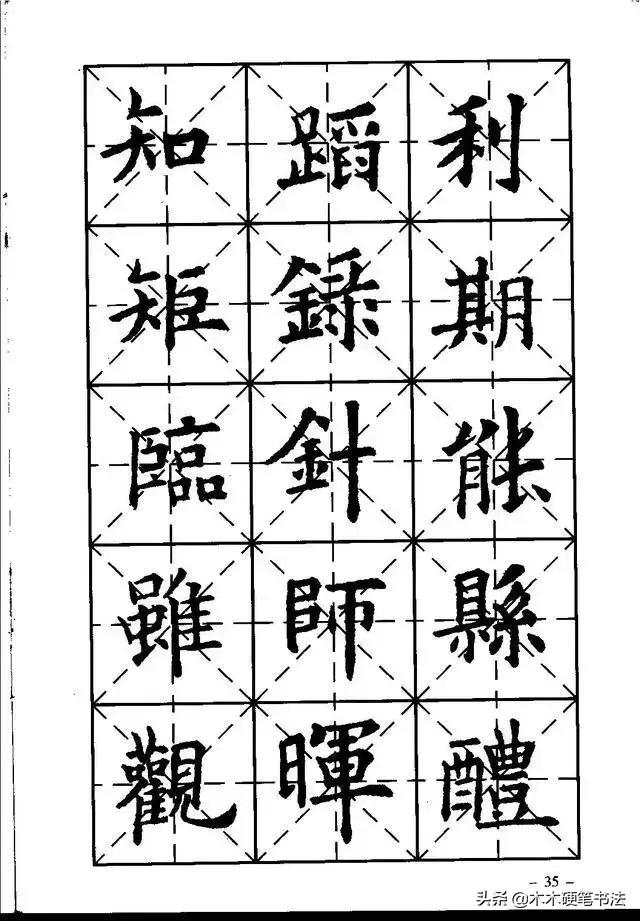 知 蹈 利
矩 錄 期
臨 針 能
雖 師 縣
觀 暉 醴
- 35 -
头条@木木硬笔书法